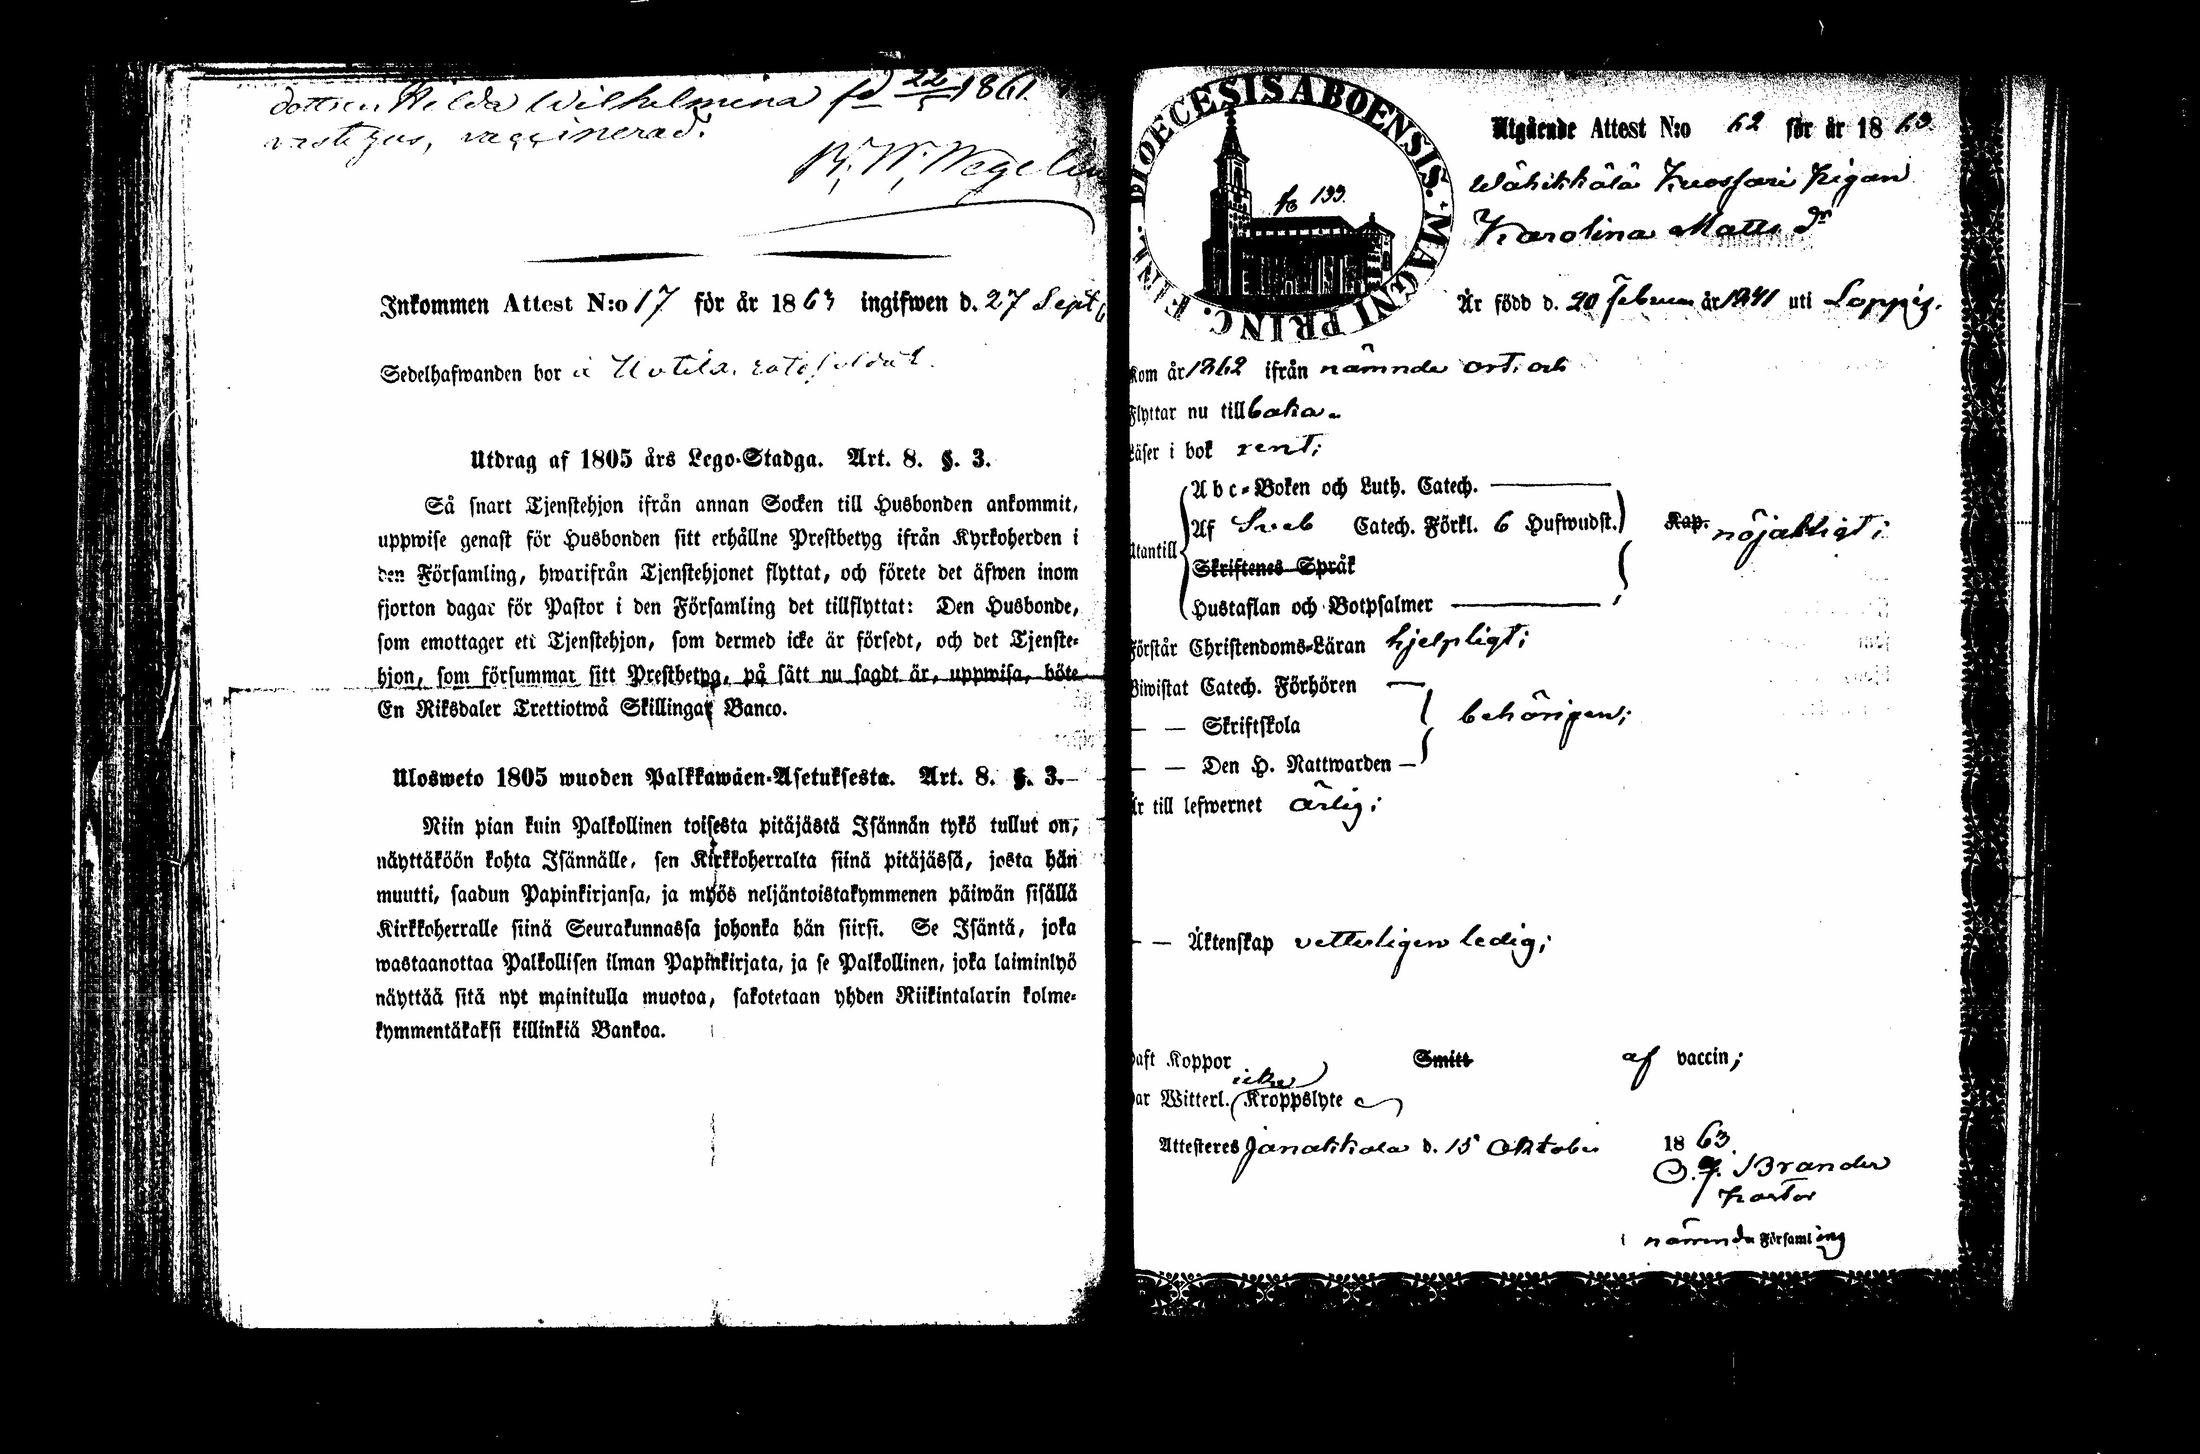 dottren Hilda Wilhelmina fd 22/5 1861.
vaccinerad.
B. W. Wegelius
Inkommen Attest N:o 17 för år 1863 ingifwen d. 27 Sept
Sedelhafwanden bor i
Utdrag af 1805 års Lego-Stadga. Art. 8. §. 3.
Så snart Tjenstehjon ifrån annan Socken till Husbonden ankommit,
uppwise genast för Husbonden sitt erhållne Prestbetyg ifrån Kyrkoherden i
den Församling, hwarifrån Tjenstehjonet flyttat, och förete det äfwen inom
fjorton dagar för Pastor i den Församling det tillflyttat: Den Husbonde,
som emottager ett Tjenstehjon, som dermed icke är försedt, och det Tjenste-
hjon, som försummar sitt Prestbetyg, på sätt nu sagdt är, uppwisa, böte
En Riksdaler Trettiotwå Skillingar Banco.
Ulosweto 1805 wuoden Palkkawäen-Asetuksesta. Art. 8. §. 3.
Niin pian kuin Palkollinen toisesta pitäjästä Isännän tykö tullut on,
näyttäköön kohta Isännälle, sen Kirkkoherralta siinä pitäjässä, josta hän
muutti, saadun Papinkirjansa, ja myös neljäntoistakymmenen päiwän sisällä
Kirkkoherralle siinä Seurakunnassa johonka hän siirsi. Se Isäntä, joka
wastaanottaa Palkollisen ilman Papinkirjata, ja se Palkollinen, joka laiminlyö
näyttää sitä nyt mainitulla muotoa, sakotetaan yhden Riikintalarin kolme-
kymmentäkaksi killinkiä Bankoa.
DIOECESIS ABOENSIS. MAGNI PRINC. FINL.
fo 133.
Utgående Attest N:o 62 för år 1863
Wähikkälä Kuossari pigan
Karolina Matts dr
Är född d. 20 Februari år 1841 uti Loppis.
Kom år 1862 ifrån nämnde ort, och
Flyttar nu tillbaka.
Läser i bok rent;
Utantill
Abc-Boken och Luth. Catech.
Af Sveb Catech. Förkl. 6 Hufwudst. Kap. nöjaktigt;
Skriftenes Språk
Hustaflan och Botpsalmer
Förstår Christendoms-Läran hjelpligt;
Biwistat Catech. Förhören
— — Skriftskola behörigen;
— — Den H. Nattwarden
Är till lefwernet ärlig;
— — Äktenskap vetterligen ledig;
Haft Koppor Smitt af vaccin;
Har Witterl. icke Kroppslyte
Attesteres Janakkala d. 15 Oktober 1863.
C. J. Brander
pastor
i nämnda Församling